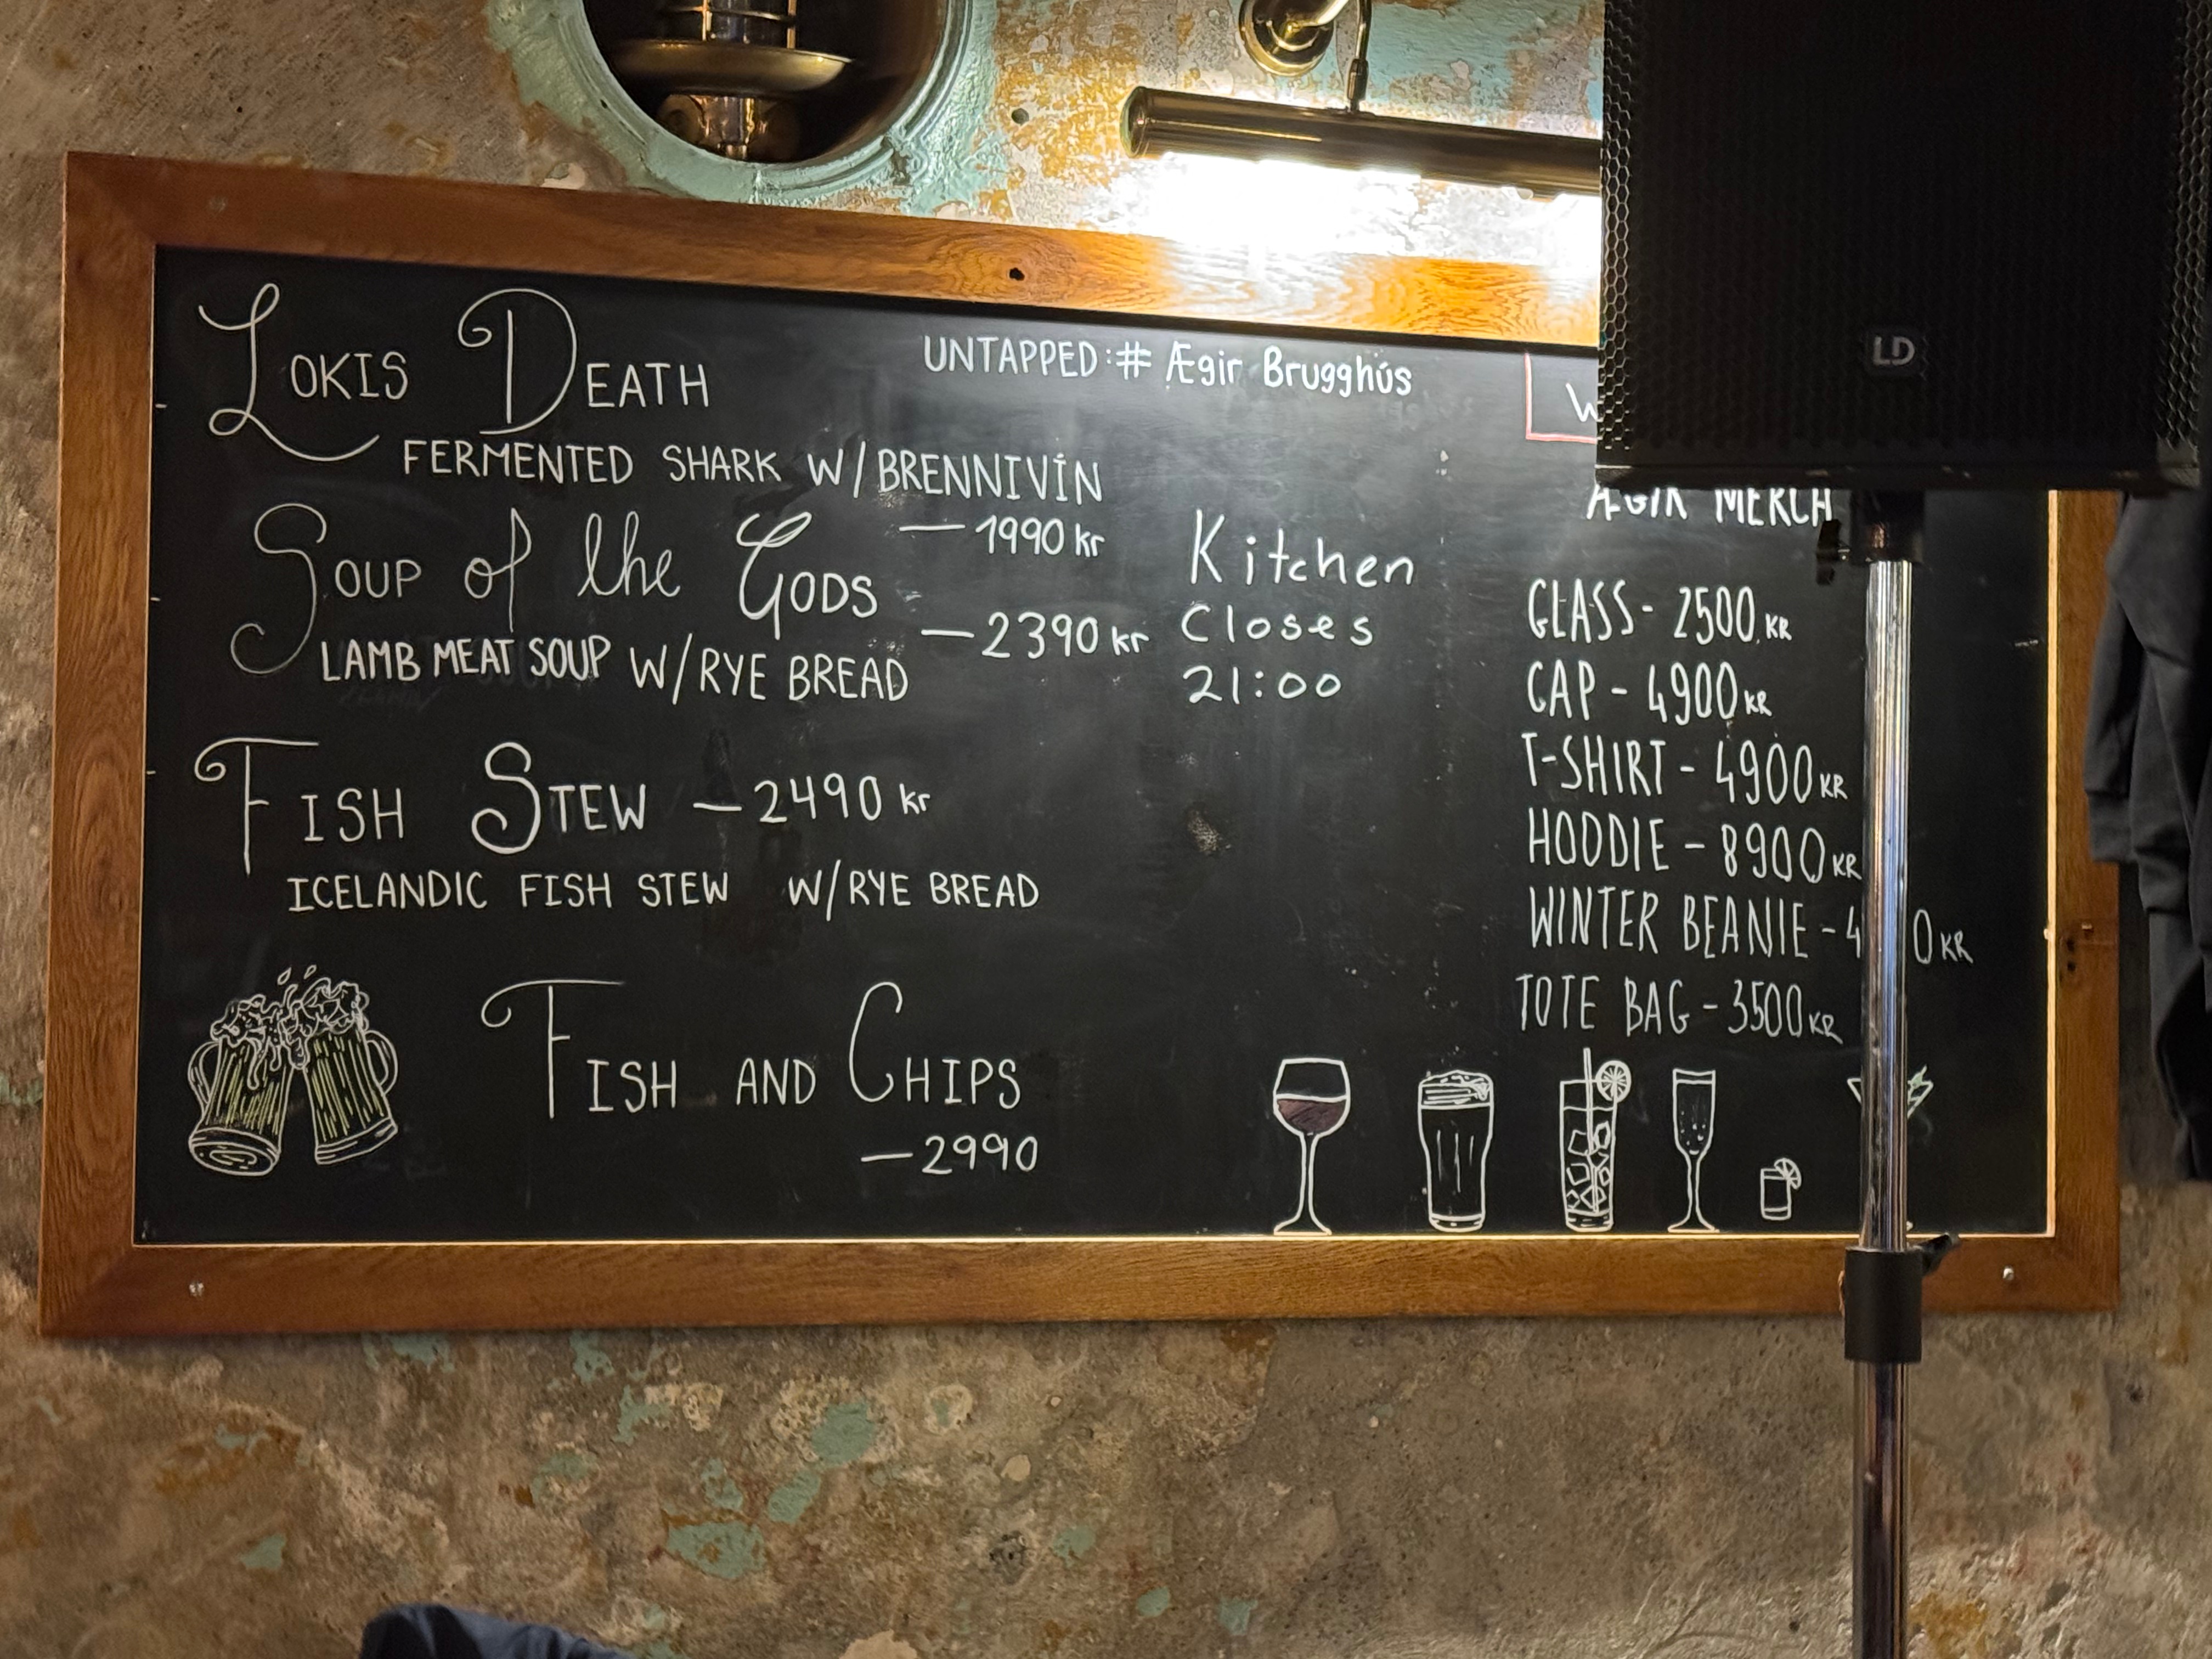 LOKIS DEATH
FERMENTED SHARK W/BRENNIVÍN
— 1990 kr
SOUP of the GODS
— 2390 kr
LAMB MEAT SOUP W/RYE BREAD
FISH STEW — 2490 kr
ICELANDIC FISH STEW W/RYE BREAD
FISH AND CHIPS
— 2990
UNTAPPED:# Ægir Brugghús
Kitchen
Closes
21:00
ÆGIR MERCH
GLASS - 2500 KR
CAP - 4900 KR
T-SHIRT - 4900 KR
HODDIE - 8900 KR
WINTER BEANIE -
TOTE BAG - 3500 KR
LD